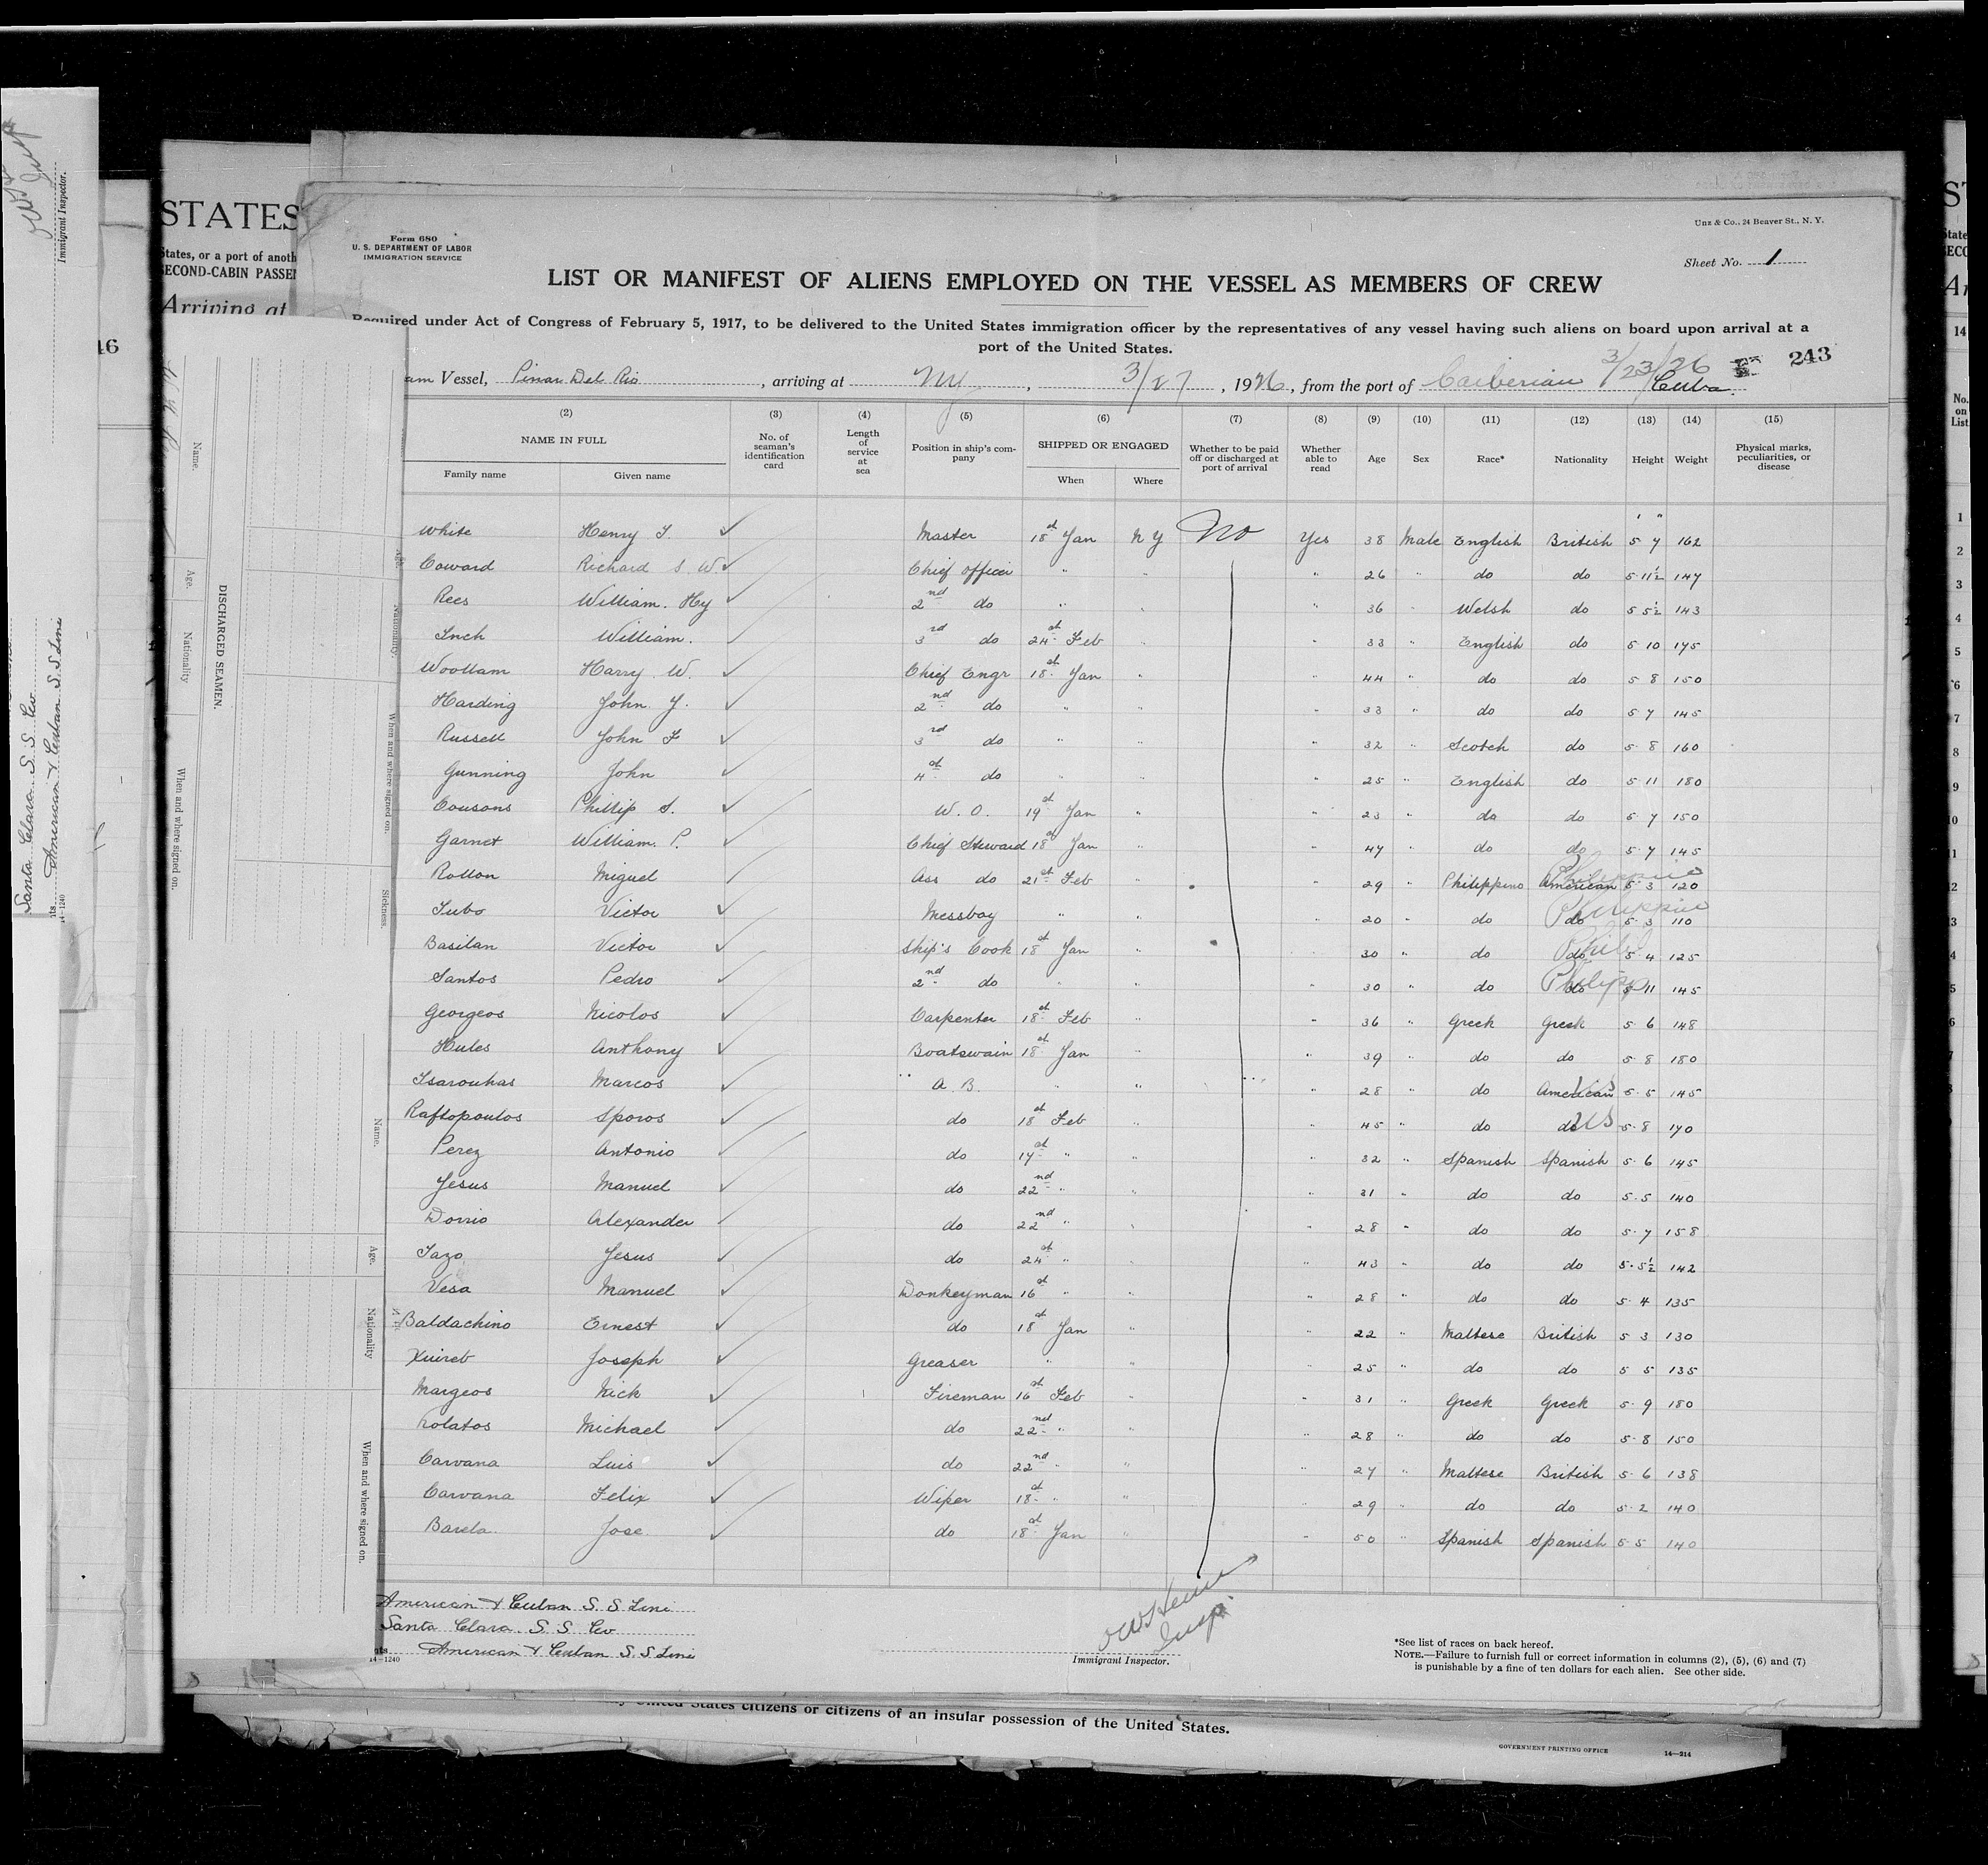 Form 680
U. S. DEPARTMENT OF LABOR
IMMIGRATION SERVICE
Unz & Co., 24 Beaver St., N. Y.
Sheet No. 1
LIST OR MANIFEST OF ALIENS EMPLOYED ON THE VESSEL AS MEMBERS OF CREW
Required under Act of Congress of February 5, 1917, to be delivered to the United States immigration officer by the representatives of any vessel having such aliens on board upon arrival at a
port of the United States.
3/23/26 243
am Vessel, Pinar Del Rio, arriving at NY, 3/27, 1926, from the port of Caiberian Cuba.
(2) (3) (4) (5) (6) (7) (8) (9) (10) (11) (12) (13) (14) (15)
NAME IN FULL
Family name Given name
No. of seaman's identification card
Length of service at sea
Position in ship's company
SHIPPED OR ENGAGED
When Where
Whether to be paid off or discharged at port of arrival
Whether able to read
Age Sex Race* Nationality Height Weight
Physical marks, peculiarities, or disease
White Henry T. Master 18th Jan N Y No Yes 38 Male English British 5 7 162
Coward Richard S. W. Chief officer " " " 26 " do do 5 11½ 147
Rees William. Hy 2nd do " " " 36 " Welsh do 5 5½ 143
Inch William. 3rd do 24th Feb " " 33 " English do 5 10 175
Woollam Harry W. Chief Engr 18th Jan " " 44 " do do 5 8 150
Harding John Y. 2nd do " " " 33 " do do 5 7 145
Russell John F 3rd do " " " 32 " Scotch do 5 8 160
Gunning John 4th do " " " 25 " English do 5 11 180
Cousons Phillip S. W. O. 19th Jan " " 23 " do do 5 7 150
Garnet William. P. Chief Steward 18th Jan " " 47 " do do 5 7 145
Rollon Miguel Ass do 21st Feb " " 29 " Philippino American Philippine 5 3 120
Tubo Victor Messboy " " " 20 " do do Philippine 5 3 110
Basilan Victor Ship's Cook 18th Jan " 30 " do do Phil 5 4 125
Santos Pedro 2nd do " " " 30 " do do Philipp 5 11 145
Georgeos Nicolos Carpenter 18th Feb " " 36 " Greek Greek 5 6 148
Hules Anthony Boatswain 18th Jan " " 39 " do do 5 8 180
Tsarouhas Marcos A. B. " " " 28 " do American US 5 5 145
Raftopoulos Sporos do 18th Feb " " 45 " do do US 5 8 170
Perez Antonio do 17th " " " 32 " Spanish Spanish 5 6 145
Jesus Manuel do 22nd " " " 31 " do do 5 5 140
Dorrio Alexander do 22nd " " " 28 " do do 5 7 158
Tazo Jesus do 24th " " " 43 " do do 5 5½ 142
Vesa Manuel Donkeyman 16th " " " 28 " do do 5 4 135
Baldachino Ernest do 18th Jan " " 22 " Maltese British 5 3 130
Xuireb Joseph Greaser " " " 25 " do do 5 5 135
Margeos Nick Fireman 16th Feb " " 31 " Greek Greek 5 9 180
Kolatos Michael do 22nd " " " 28 " do do 5 8 150
Carvana Luis do 22nd " " " 27 " Maltese British 5 6 138
Carvana Felix Wiper 18th " " " 29 " do do 5 2 140
Barela Jose do 18th Jan " " 50 " Spanish Spanish 5 5 140
American & Cuban S. S Line
Santa Clara. S. S. Co
nts American & Cuban S. S Line
14-1240
Insp.
Immigrant Inspector.
*See list of races on back hereof.
NOTE.—Failure to furnish full or correct information in columns (2), (5), (6) and (7)
is punishable by a fine of ten dollars for each alien. See other side.
United States citizens or citizens of an insular possession of the United States.
GOVERNMENT PRINTING OFFICE 14—214
STATES
States, or a port of anoth
SECOND-CABIN PASSEN
Arriving at
16
Name.
Age.
Nationality
When and where signed on.
DISCHARGED SEAMEN.
Age.
Nationality.
When and where signed on.
Sickness.
Name.
Age.
Nationality
When and where signed on.
Immigrant Inspector.
Santa Clara S. S. Co
nts American & Cuban S. S Line
14-1240
14
No.
on
List
1
2
3
4
5
6
7
8
9